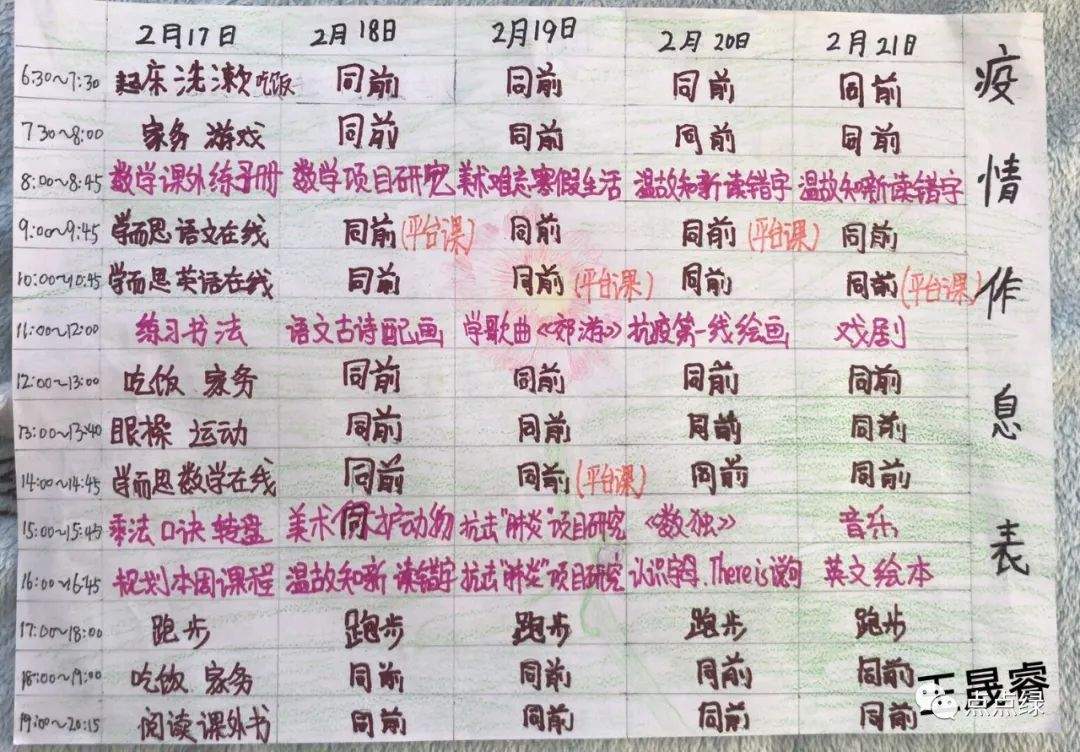 2月17日 2月18日 2月19日 2月20日 2月21日
6:30~7:30 起床 洗漱 吃饭 同前 同前 同前 同前
7:30~8:00 家务 游戏 同前 同前 同前 同前
8:00~8:45 数学课外练习册 数学项目研究 美术难忘寒假生活 温故知新读错字 温故知新读错字
9:00~9:45 学而思语文在线 同前(平台课) 同前 同前(平台课) 同前
10:00~10:45 学而思英语在线 同前 同前(平台课) 同前 同前(平台课)
11:00~12:00 练习书法 语文古诗配画 学歌曲《郊游》 抗疫第一线绘画 戏剧
12:00~13:00 吃饭 家务 同前 同前 同前 同前
13:00~13:40 眼操 运动 同前 同前 同前 同前
14:00~14:45 学而思数学在线 同前 同前(平台课) 同前 同前
15:00~15:45 乘法口诀 转盘 美术 动物 抗击"肺炎"项目研究 《数独》 音乐
16:00~16:45 规划本周课程 温故知新 读错字 抗击"肺炎"项目研究 认识字母.There is 英文绘本
17:00~18:00 跑步 跑步 跑步 跑步 跑步
18:00~19:00 吃饭 家务 同前 同前 同前 同前
19:00~20:15 阅读课外书 同前 同前 同前 同前
疫情作息表
王晟睿
点点绿